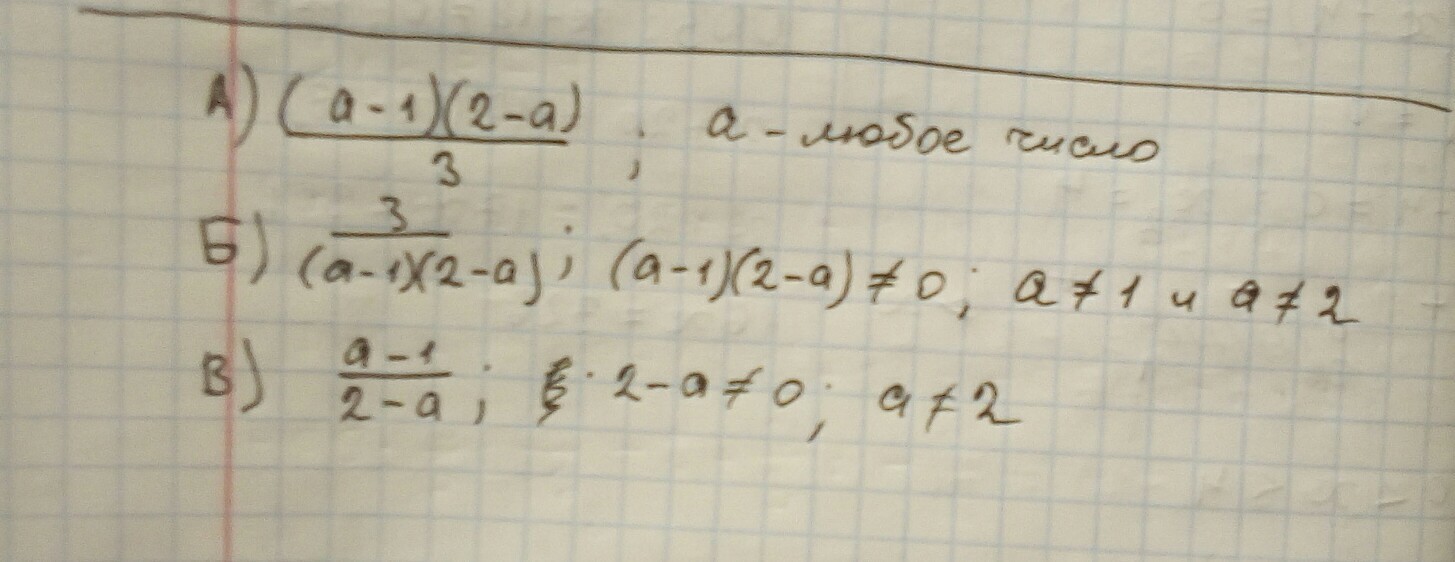 А) (a-1)(2-a)/3 ; a - любое число
Б) 3/(a-1)(2-a) ; (a-1)(2-a) ≠ 0; a ≠ 1 и a ≠ 2
В) a-1/2-a ; 2-a ≠ 0; a ≠ 2